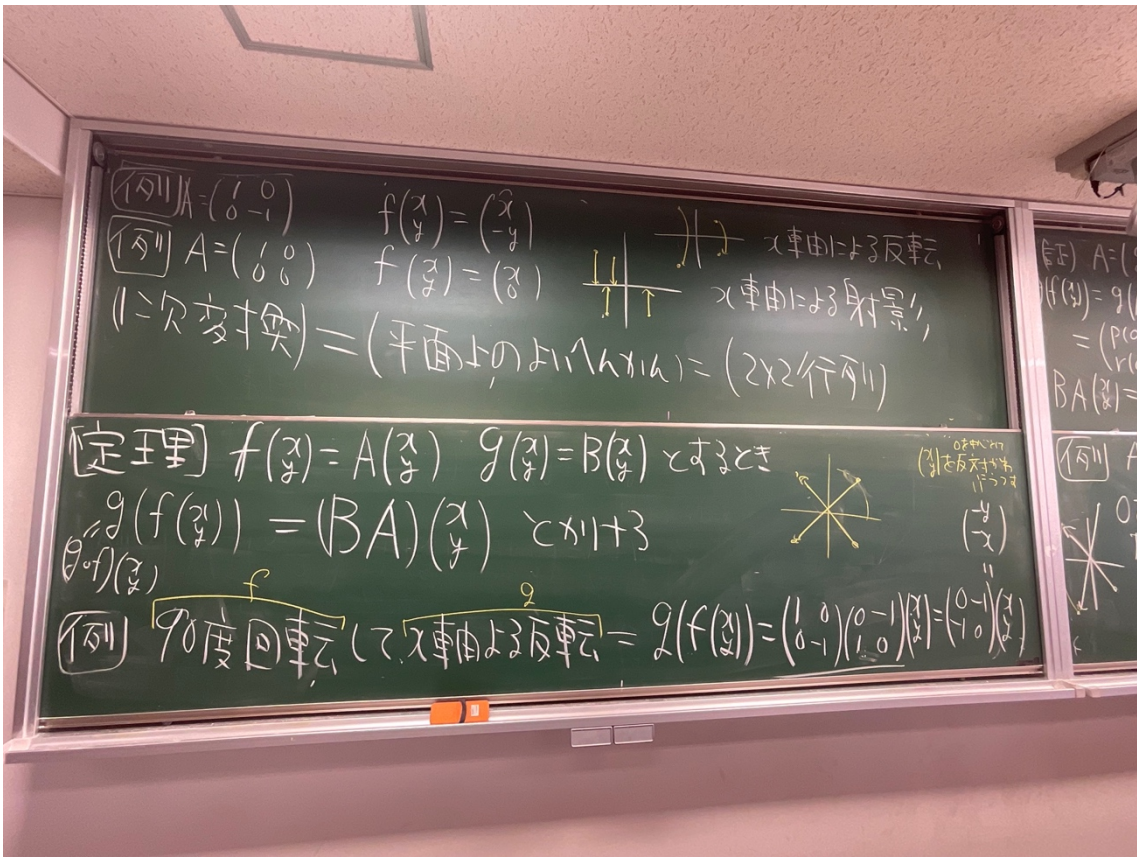 例 A=(1 0 / 0 -1) f(x / y)=(x / -y) x軸による反転
例 A=(1 0 / 0 0) f(x / y)=(x / 0) x軸による射影
(1次変換)=(平面上のよいへんかん)=(2×2行列)
定理 f(x / y)=A(x / y) g(x / y)=B(x / y) とするとき
g(f(x / y))=(BA)(x / y) とかける
〃
(g∘f)(x / y)
(x / y)を反対がわ
にうつす
=
(-y / -x)
=
f g
例 90度回転して、x軸よる反転=g(f(x / y))=(1 0 / 0 -1)(0 -1 / 1 0)(x / y)=(0 -1 / -1 0)(x / y)
証) A=(
g(f(x / y))=g(
=(
BA(x / y)=
例 A